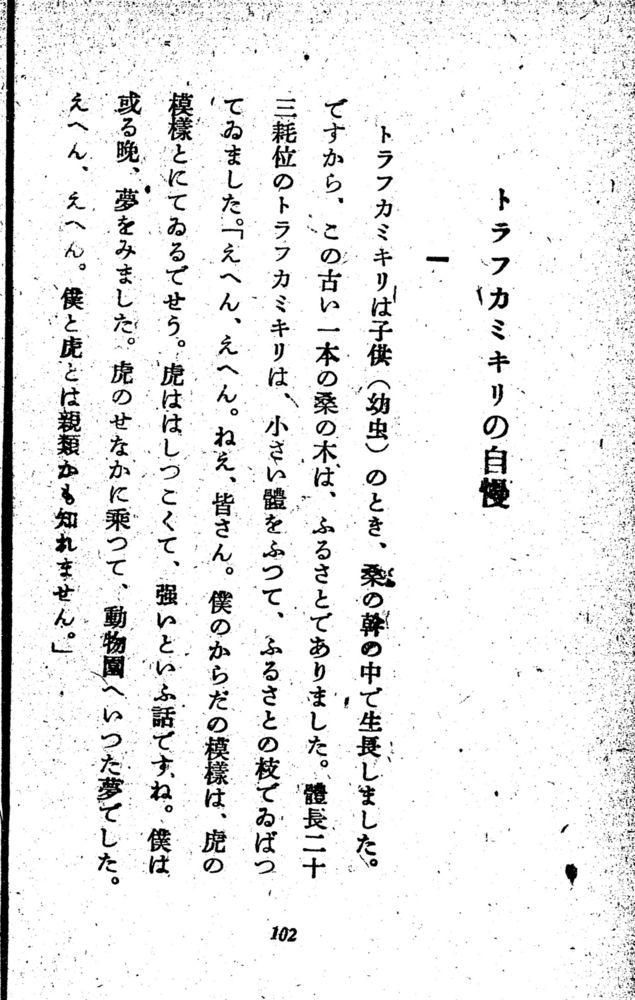 トラフカミキリの自慢
一
トラフカミキリは子供（幼虫）のとき、桑の幹の中で生長しました。
ですから、この古い一本の桑の木は、ふるさとでありました。體長二十
三粍位のトラフカミキリは、小さい體をふつて、ふるさとの枝でゐばつ
てゐました。「えへん、えへん。ねえ、皆さん。僕のからだの模樣は、虎の
模樣とにてゐるでせう。虎ははしつこくて、強いといふ話ですね。僕は
或る晩、夢をみました。虎のせなかに乘つて、動物園へいつた夢でした。
えへん、えへん。僕と虎とは親類かも知れません。」
102